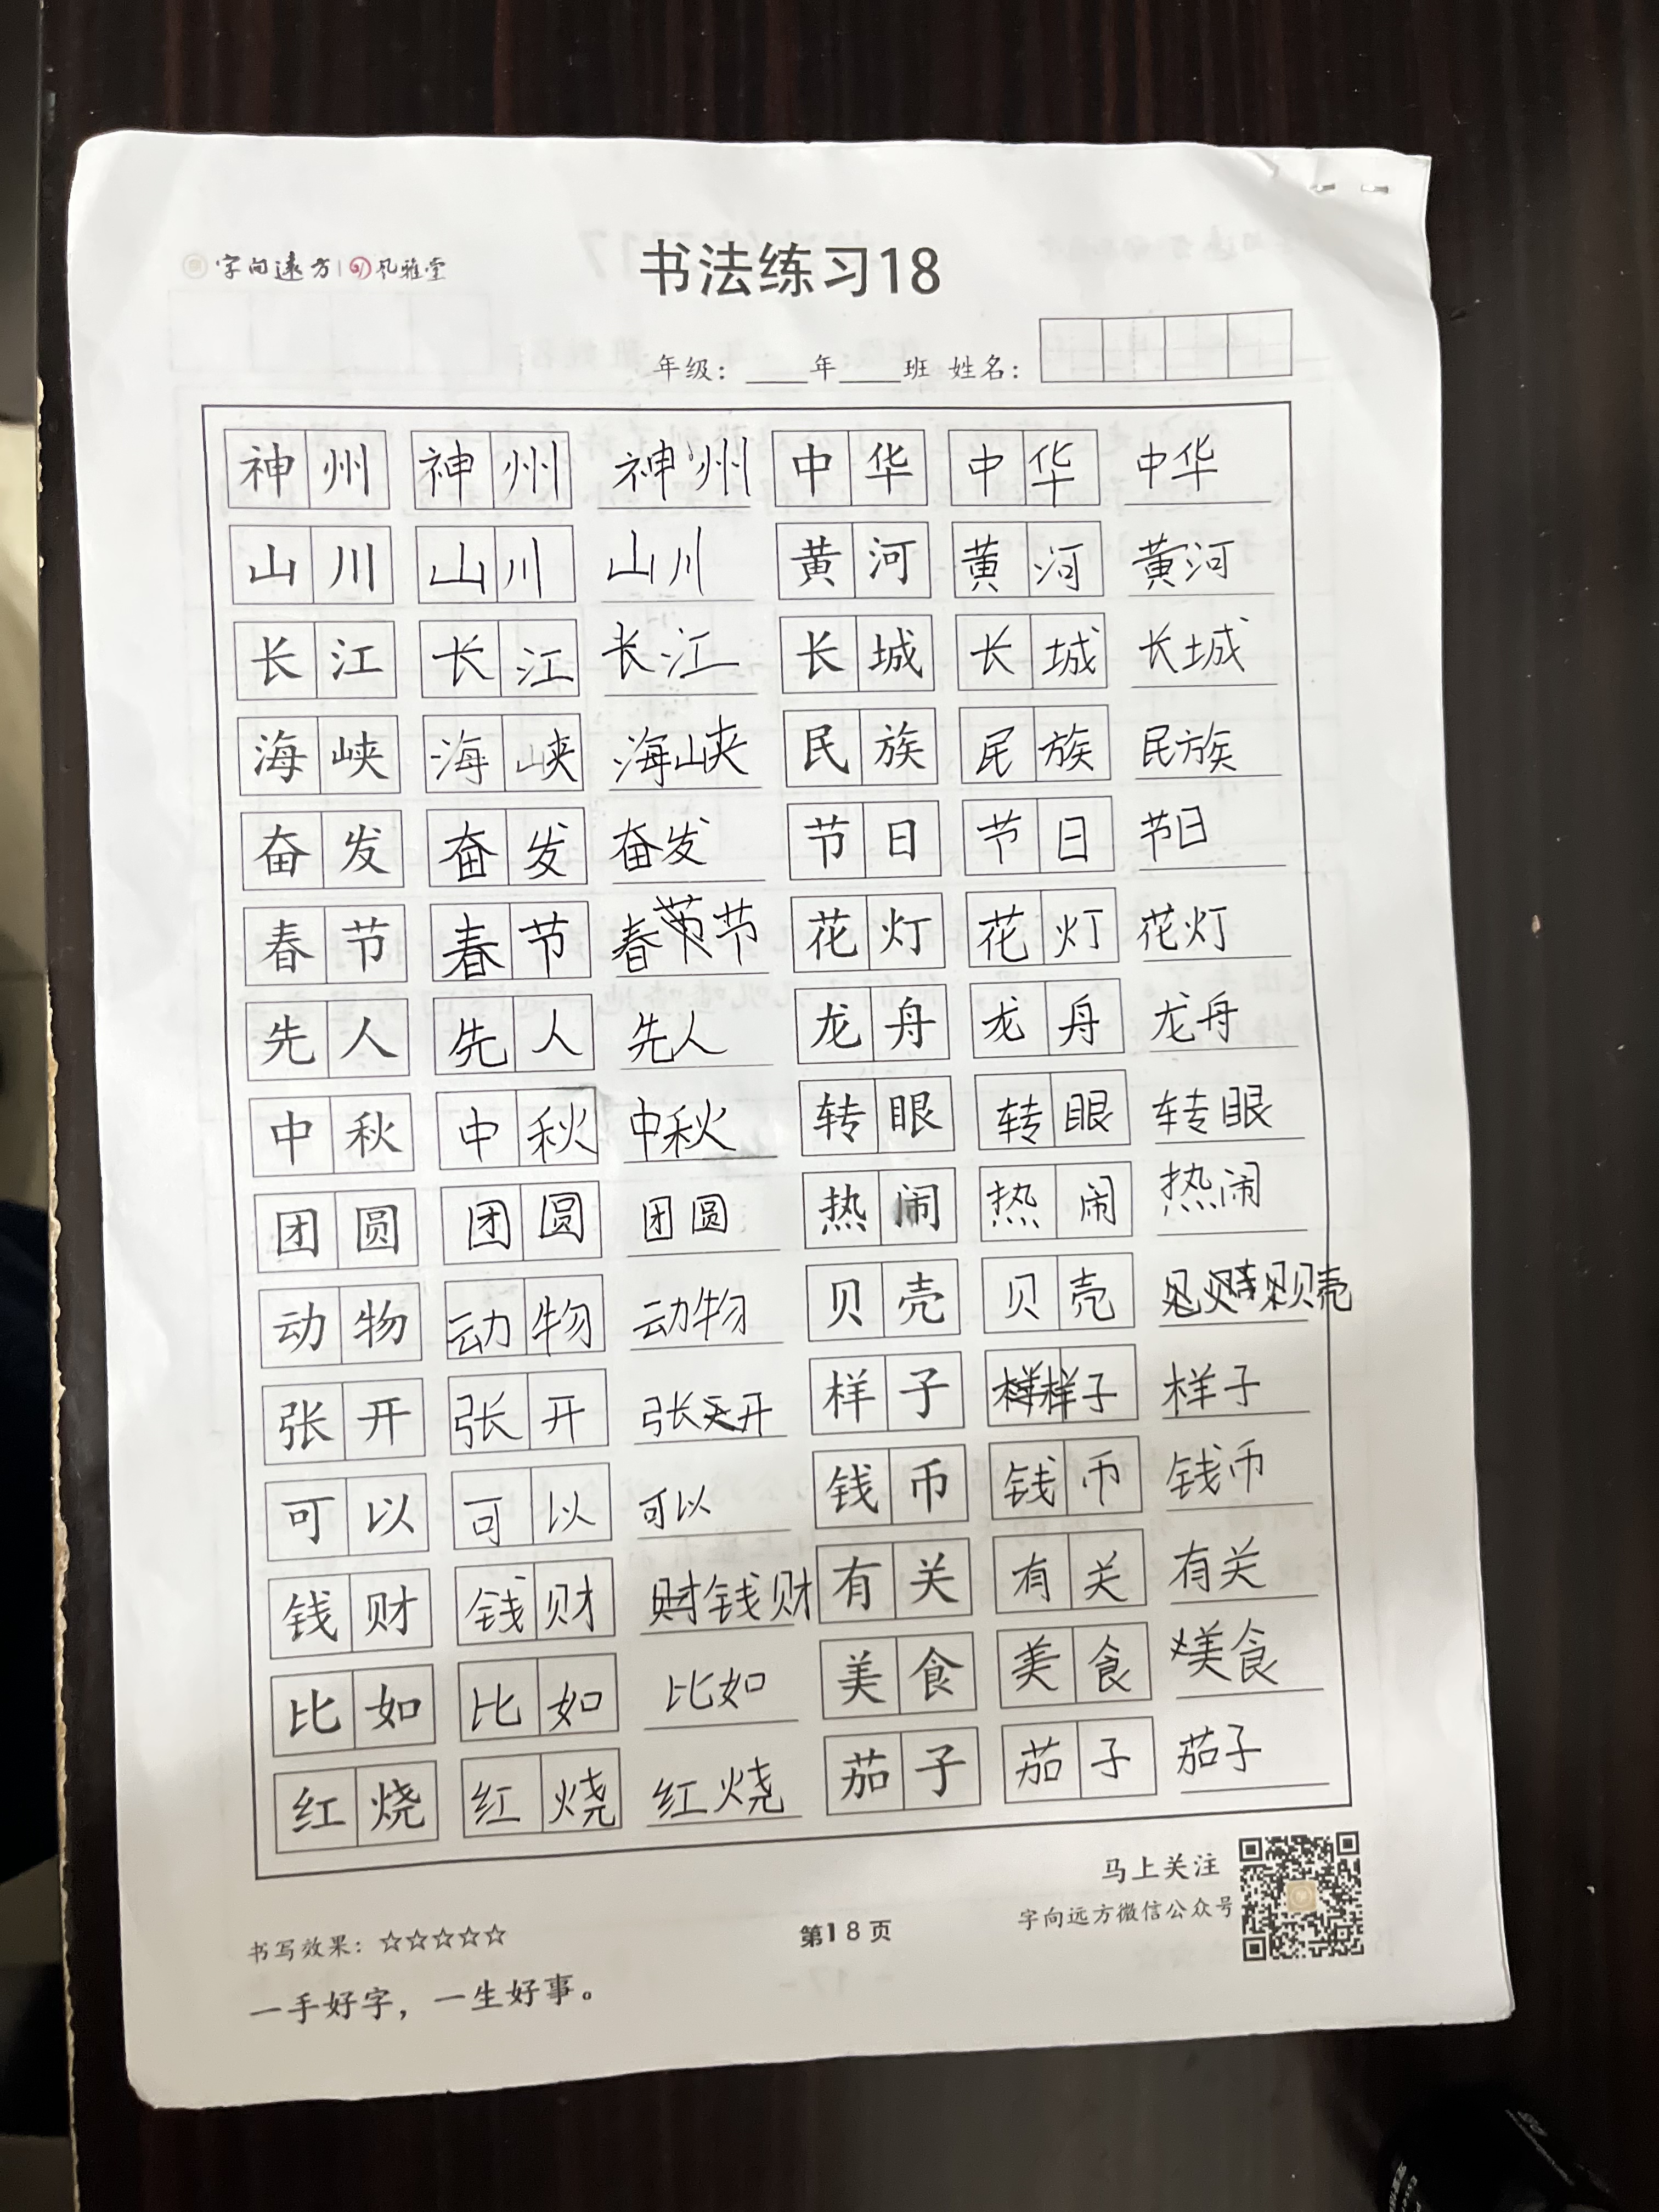 字向遠方 风雅堂
书法练习18
年级：____年____班 姓名：
神州 神州 神州 中华 中华 中华
山川 山川 山川 黄河 黄河 黄河
长江 长江 长江 长城 长城 长城
海峡 海峡 海峡 民族 民族 民族
奋发 奋发 奋发 节日 节日 节日
春节 春节 春节 花灯 花灯 花灯
先人 先人 先人 龙舟 龙舟 龙舟
中秋 中秋 中秋 转眼 转眼 转眼
团圆 团圆 团圆 热闹 热闹 热闹
动物 动物 动物 贝壳 贝壳 贝壳
张开 张开 张开 样子 样子 样子
可以 可以 可以 钱币 钱币 钱币
钱财 钱财 钱财 有关 有关 有关
比如 比如 比如 美食 美食 美食
红烧 红烧 红烧 茄子 茄子 茄子
马上关注
字向远方微信公众号
书写效果：☆☆☆☆☆
第18页
一手好字，一生好事。